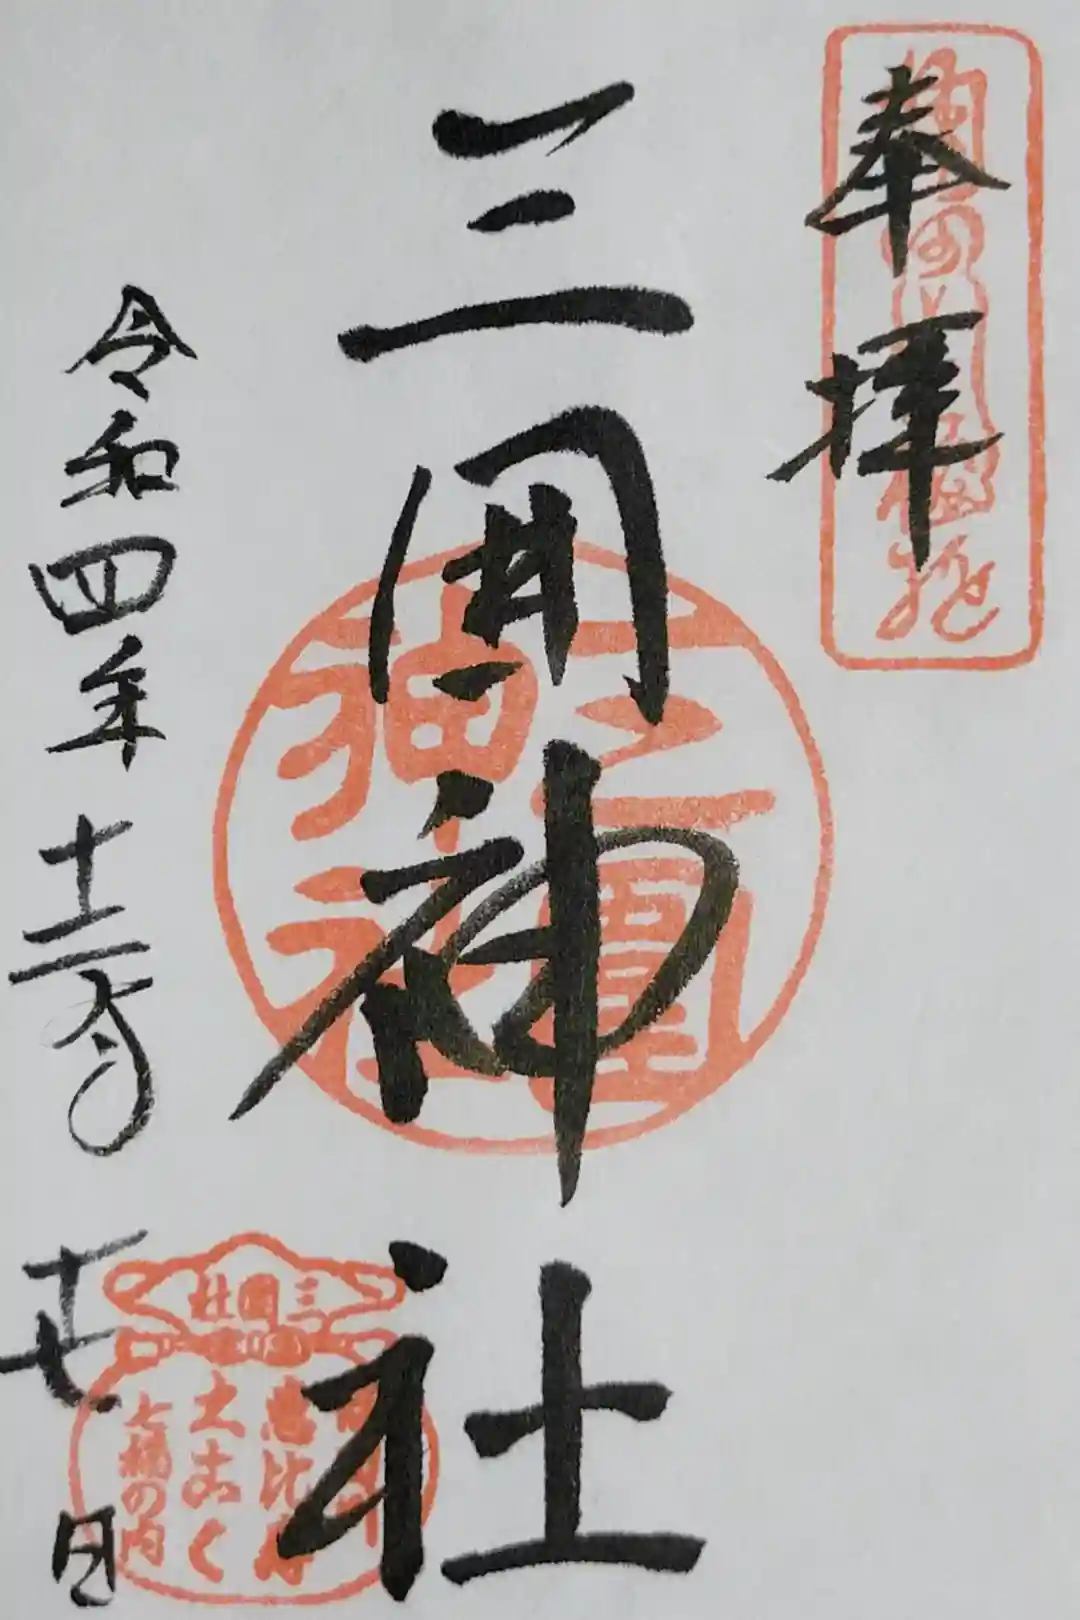 奉拝
三囲神社
三囲神社
令和四年十二月十七日
三囲社
恵比寿
大こく
七福の内